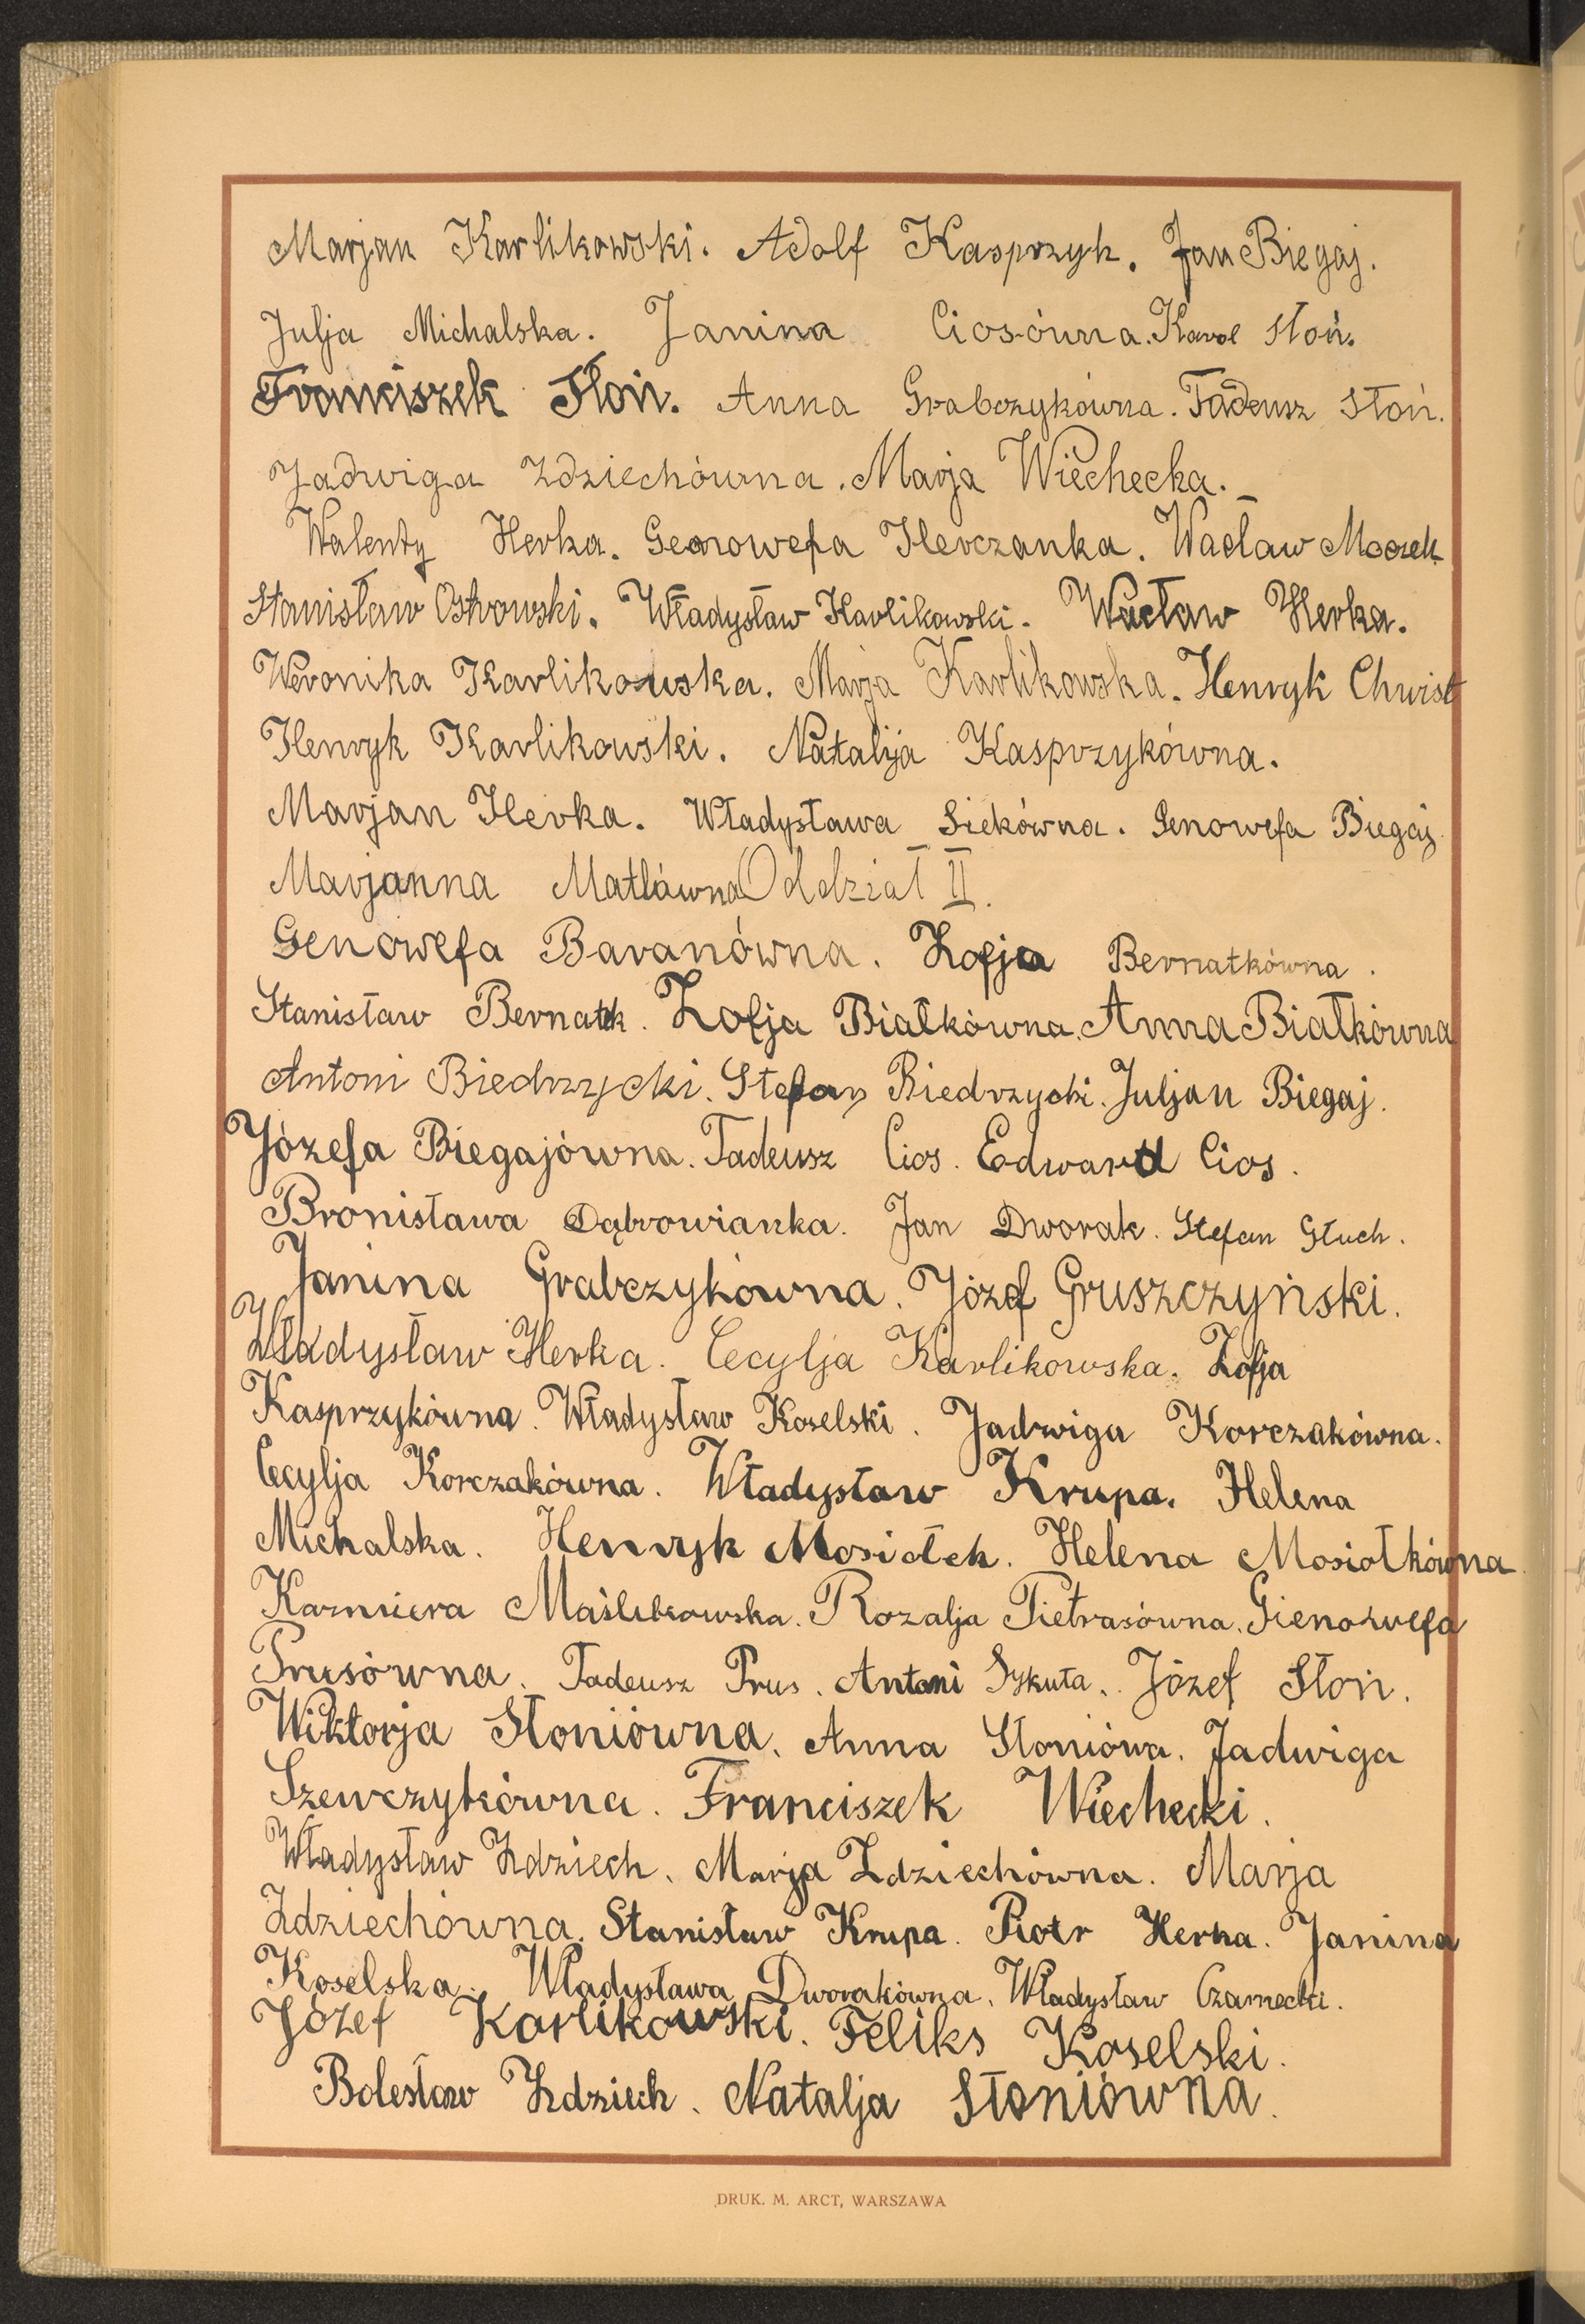 Marjan Karlikowski. Adolf Kasprzyk. Jan Biegaj.
Julja Michalska. Janina Ciosówna. Karol Słoń.
Franciszek Słoń. Anna Grabczykówna. Tadeusz Słoń.
Jadwiga Zdziechówna. Marja Wiechecka.
Walenty Herka. Genowefa Herczanka. Wacław
Stanisław Ostrowski. Władysław Karlikowski. Wacław Herka.
Weronika Karlikowska. Marja Karlikowska. Henryk Chwist
Henryk Karlikowski. Natalija Kasprzykówna.
Marjan Herka. Władysława Siekówna. Genowefa Biegaj.
Marjanna Matlàwna Oddział II.
Genowefa Baranówna. Zofja Bernatkówna.
Stanisław Bernatek. Zofja Białkówna. Anna Białkówna
Antoni Biedrzycki. Stefan Biedrzycki. Juljan Biegaj.
Józefa Biegajówna. Tadeusz Cios. Edward Cios.
Bronisława Dąbrowianka. Jan Dworak. Stefan Głuch.
Janina Grabczykówna. Józef Gruszczyński.
Władysław Herka. Cecylja Karlikowska. Zofja
Kasprzykówna. Władysław Koselski. Jadwiga Korczakówna.
Cecylja Korczakówna. Władysław Krupa. Helena
Michalska. Henryk Mosiołek. Helena Mosiołkówna.
Kazmiera Rozalja Pietrasówna. Gienowefa
Prusówna. Tadeusz Prus. Antoni Sykuła. Józef Słoń.
Wiktorja Słoniówna. Anna Słoniówa. Jadwiga
Szewczykówna. Franciszek Wiechecki.
Władysław Zdziech. Marja Zdziechówna. Marja
Zdziechówna. Stanisław Krupa. Piotr Herka. Janina
Koselska. Władysława Dworakówna. Władysław Czarnecki.
Józef Karlikowski. Feliks Koselski.
Bolesław Zdziech. Natalja Słoniówna.
DRUK. M. ARCT, WARSZAWA